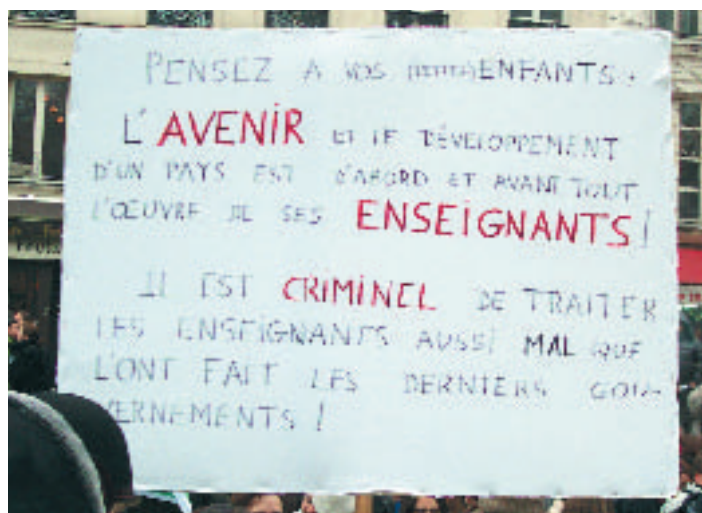 PENSEZ A VOS ENFANTS :
L'AVENIR ET LE DÉVELOPPEMENT
D'UN PAYS EST D'ABORD ET AVANT TOUT
L'ŒUVRE DE SES ENSEIGNANTS !
IL EST CRIMINEL DE TRAITER
LES ENSEIGNANTS AUSSI MAL QUE
L'ONT FAIT LES DERNIERS GOU-
VERNEMENTS !